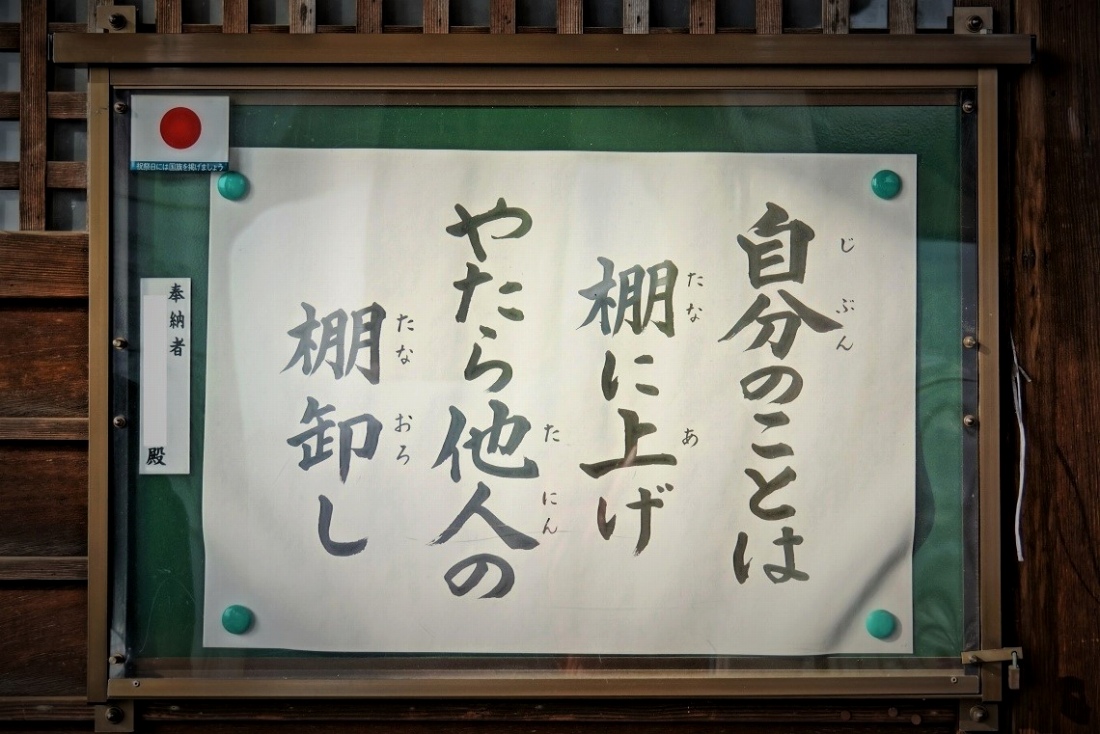 自分のことは
じ ぶん
棚に上げ
たな あ
やたら他人の
た にん
棚卸し
たな おろ
祝祭日には国旗を掲げましょう
奉納者
殿